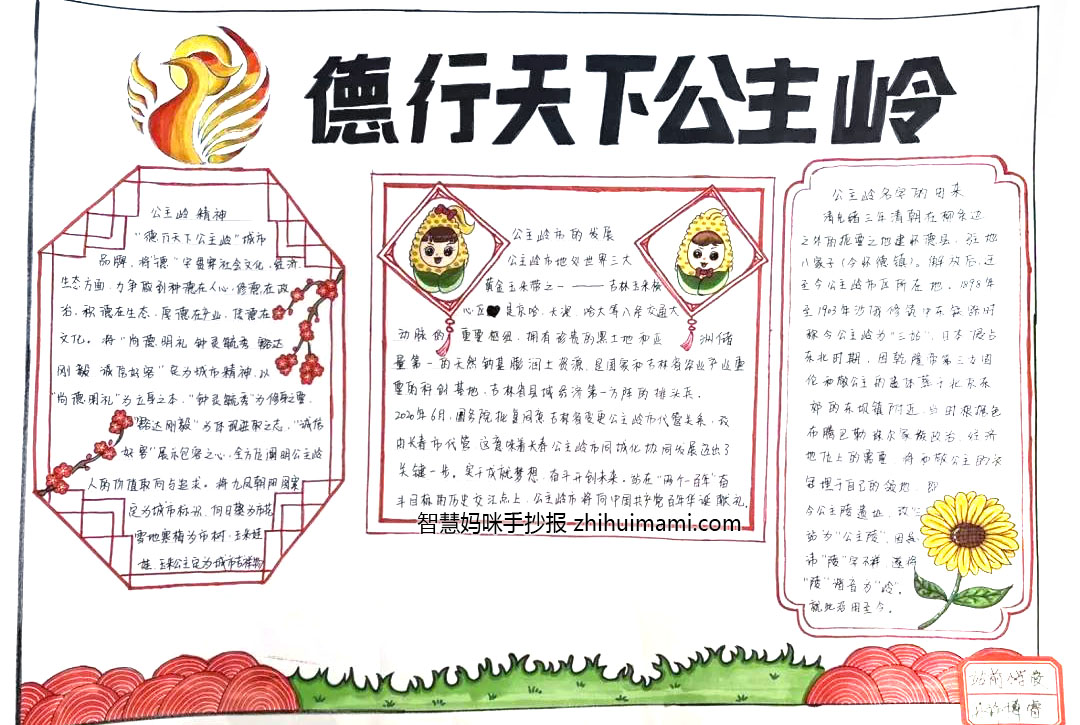 德行天下公主岭
公主岭 精神
“德行天下公主岭”城市
品牌，将“德”字贯穿社会文化、经济、
生态方面，力争做到种德在人心，修德在政
治，积德在生态，厚德在产业，传德在
文化。将“尚德明礼 钟灵毓秀 豁达
刚毅 诚信好客”定为城市精神，以
“尚德明礼”为立身之本，“钟灵毓秀”为修身之要，
“豁达刚毅”为体现进取之志，“诚信
好客”展示包容之心，全方位阐明公主岭
人的价值取向与追求。将九凤朝阳图案
定为城市标识，向日葵为市花
雪地寒梅为市树，玉米娃
娃、玉米公主定为城市吉祥物
公主岭市的发展
公主岭市地处世界三大
黄金玉米带之一——吉林玉米核
心区 是京哈、长深、哈大等八条交通大
动脉的 重要枢纽，拥有珍贵的黑土地和亚 洲储
量第一的天然钠基膨润土资源，是国家和吉林省农业产业重
要的科创基地，吉林省县域经济第一方阵的排头兵。
2020年6月，国务院批复同意吉林省变更公主岭市代管关系，改
由长春市代管 这意味着长春 公主岭市同城化协同发展迈出了
关键一步。实干成就梦想，奋斗开创未来。站在“两个一百年”奋
斗目标的历史交汇点上，公主岭市将向中国共产党百年华诞献礼。
智慧妈咪手抄报 zhihuimami.com
公主岭名字的由来
清光绪三年清朝在柳条边
之外的扼要之地建怀德县，驻地
八家子（今怀德镇）。解放后，迁
至今公主岭市区所在地。1898年
至1903年沙俄修筑中东铁路时
称今公主岭为“三站”，日本侵占
东北时期，因乾隆帝第三女固
伦和敬公主的遗体葬于北京东
郊的东坝镇附近，当时根据色
布腾巴勒珠尔家族政治、经济
地位上的需要 将和敬公主的衣
冠埋于自己的领地，即
今公主陵遗址，改三
站为“公主陵”，因县
市“陵”字不祥，遂将
“陵”谐音为“岭”。
就此沿用至今。
站前小学校